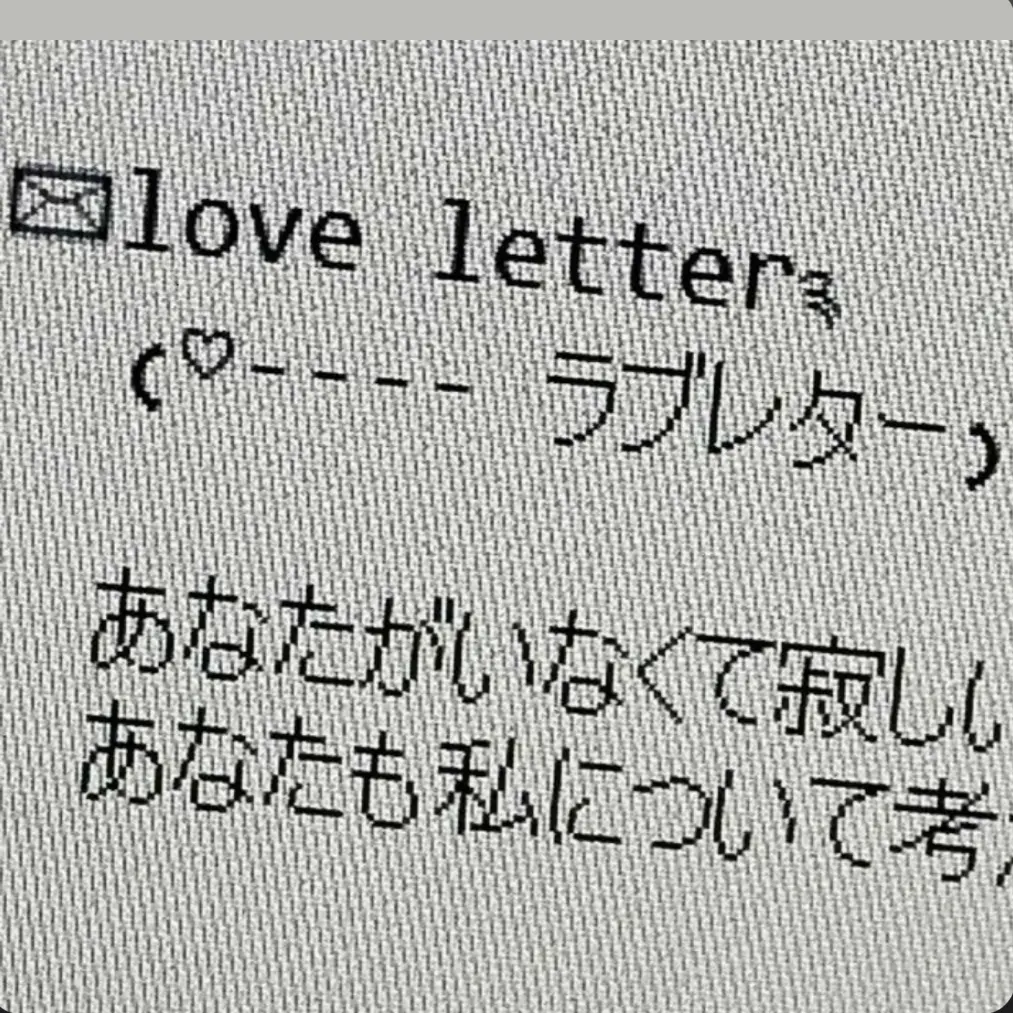 ✉love letter༉
(♡---- ラブレター)
あなたがいなくて寂しい
あなたも私について考